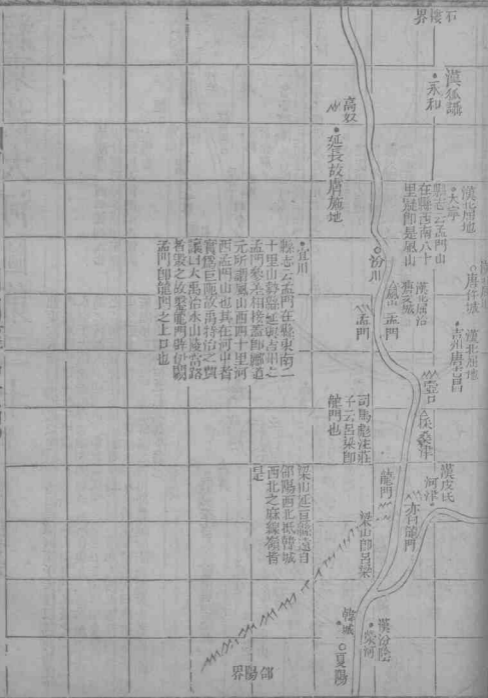 石樓界
漢狐讘
永和
高奴
延長故膚施地
漢北屈地
大寧
縣志云孟門山
在縣西南八十
里疑即是風山
汾川
風山
孟門
孟門
漢北屈地
吉州唐吉昌
宜川
縣志云孟門在縣東南一
十里山勢緜延與吉州之
孟門參差相接蓋即酈道
元所謂風山西四十里河
西孟門山也其在河中者
實為巨阨故禹特治之
曰大禹治水山陵當路
者毀之故鑿龍門辟伊闕
孟門即龍門之上口也
壺口
采桑津
司馬彪注莊
子云呂梁即
龍門也
漢皮氏
河津
亦曰龍門
龍門
梁山即呂梁
梁山延亘縣遠自
郃陽西北抵韓城
西北之麻線嶺皆
是
韓城
夏陽
漢汾陰
榮河
郃陽界